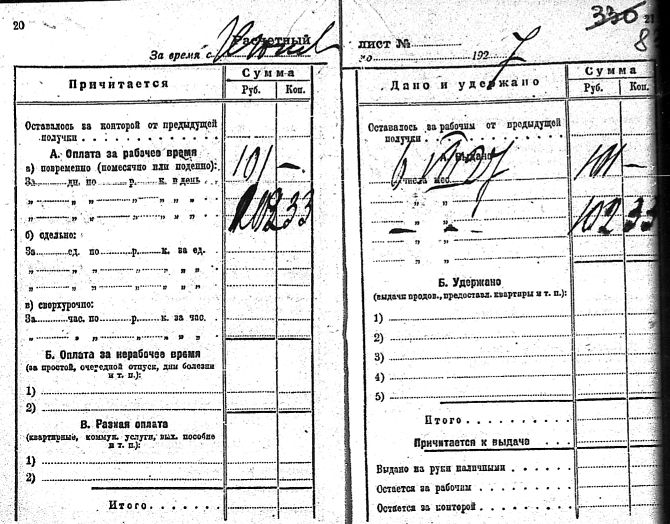 20
Расчетный
За время с
Причитается
Сумма
Руб.
Коп.
Оставалось за конторой от предыдущей
получки
А. Оплата за рабочее время
а) повременно (помесячно или поденно):
101 —
За дн. по р. к. в день
„ „ „ „ „ „
102 33
„ „ „ „ „ „
б) сдельно:
За ед. по р. к. за ед.
„ „ „ „ „ „
„ „ „ „ „ „
в) сверхурочно:
За час. по р. к. за час.
„ „ „ „ „ „
Б. Оплата за нерабочее время
(за простой, очередной отпуск, дни болезни
и т. п.):
1)
2)
В. Разная оплата
(квартирные, коммун. услуги, вых. пособие
и т. п.):
1)
2)
Итого
330
21
лист №
по 1927
Дано и удержано
Сумма
Руб.
Коп.
Оставалось за рабочим от предыдущей
получки
А. Выдано
101 —
числа мес.
„ „
„ „
102 33
— „ — „
„ „
Б. Удержано
(выдачи продов., предоставл. квартиры и т. п.):
1)
2)
3)
4)
5)
Итого
Причитается к выдаче
Выдано на руки наличными
Остается за рабочим
Остается за конторой